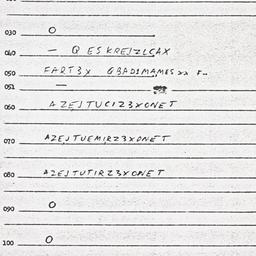 030 O
040 — Q ESKREJZLCAX
050 FART3X GBADIMAMES
051 —
060 AZEJTUCIZ3XONET
070 AZEJTUEMIRZ3XONET
080 AZEJTUTIRZ3XONET
090 O
100 O